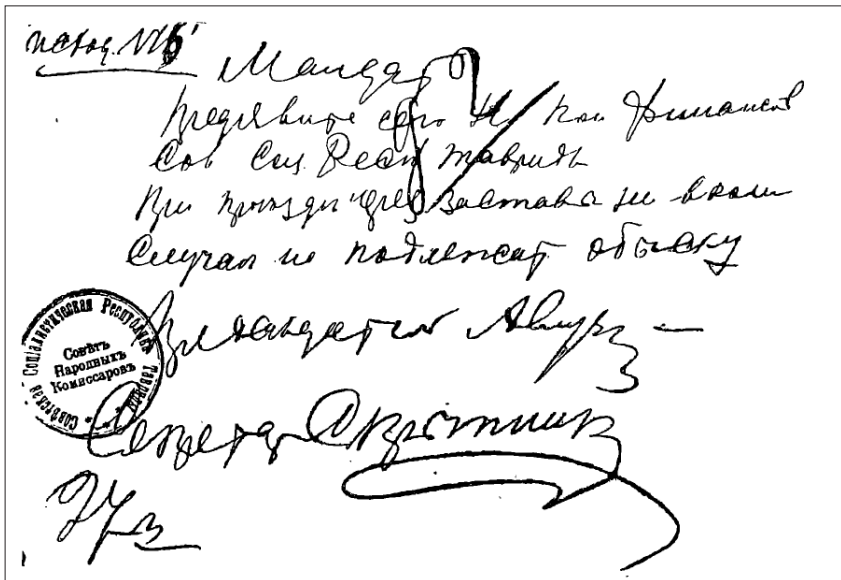 исход. №
Мандат
Предявителю сего Н. Ком Финансов
Сов Соц Респ Тавриды
При проезде чрез заставы не в коем
случаи не подлежат обыску
Советская Социалистическая Республика Тавриды
Совѣтъ
Народныхъ
Комиссаровъ
Секретар Скрыпник